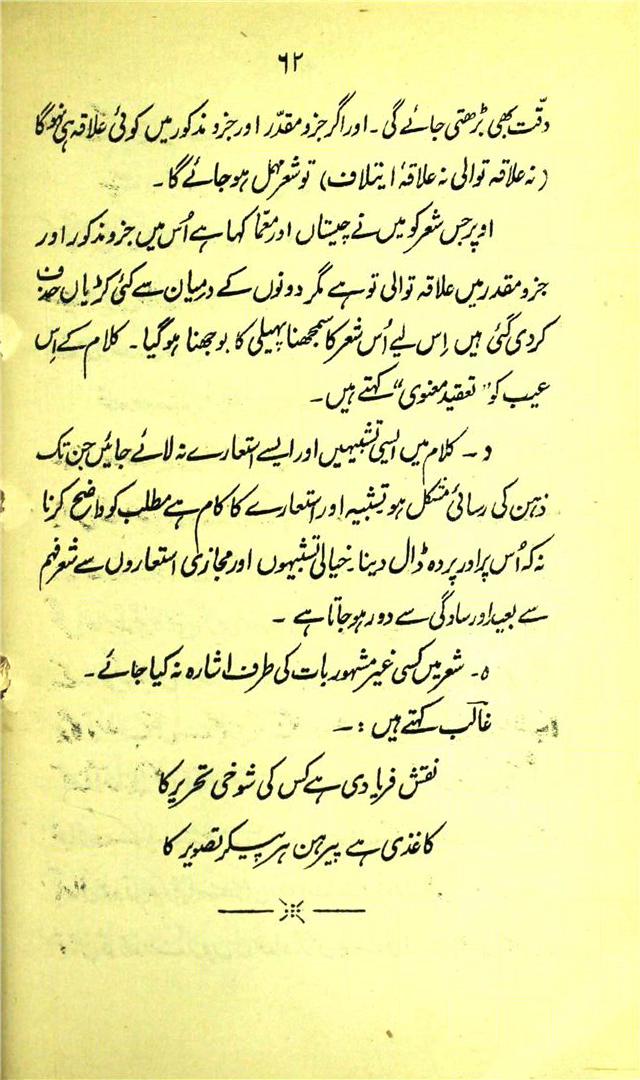 ۶۲
دقّت بھی بڑھتی جائے گی۔ اور اگر جزو مقدّر اور جزو مذکور میں کوئی علاقہ ہی نہوگا
(نہ علاقہ توالی نہ علاقۂ ایتلاف) تو شعر مہمل ہو جائے گا۔
اوپر جس شعر کو میں نے چیستاں اور معمّا کہا ہے اُس میں جزو مذکور اور
جزو مقدر میں علاقہ توالی تو ہے مگر دونوں کے درمیان سے کئی کڑیاں حذف
کردی گئی ہیں اِس لیے اُس شعر کا سمجھنا پہیلی کا بوجھنا ہوگیا۔ کلام کے اِس
عیب کو "تعقید معنوی" کہتے ہیں۔
د۔ کلام میں ایسی تشبیہیں اور ایسے استعارے نہ لائے جائیں جن تک
ذہن کی رسائی مشکل ہو تشبیہ اور استعارے کا کام ہے مطلب کو واضح کرنا
نہ کہ اُس پر اور پردہ ڈال دینا۔ خیالی تشبیہوں اور مجازی استعاروں سے شعر فہم
سے بعید اور سادگی سے دور ہو جاتا ہے۔
ہ۔ شعر میں کسی غیر مشہور بات کی طرف اشارہ نہ کیا جائے۔
غالب کہتے ہیں :۔
نقش فریادی ہے کس کی شوخی تحریر کا
کاغذی ہے پیرہن ہر پیکر تصویر کا